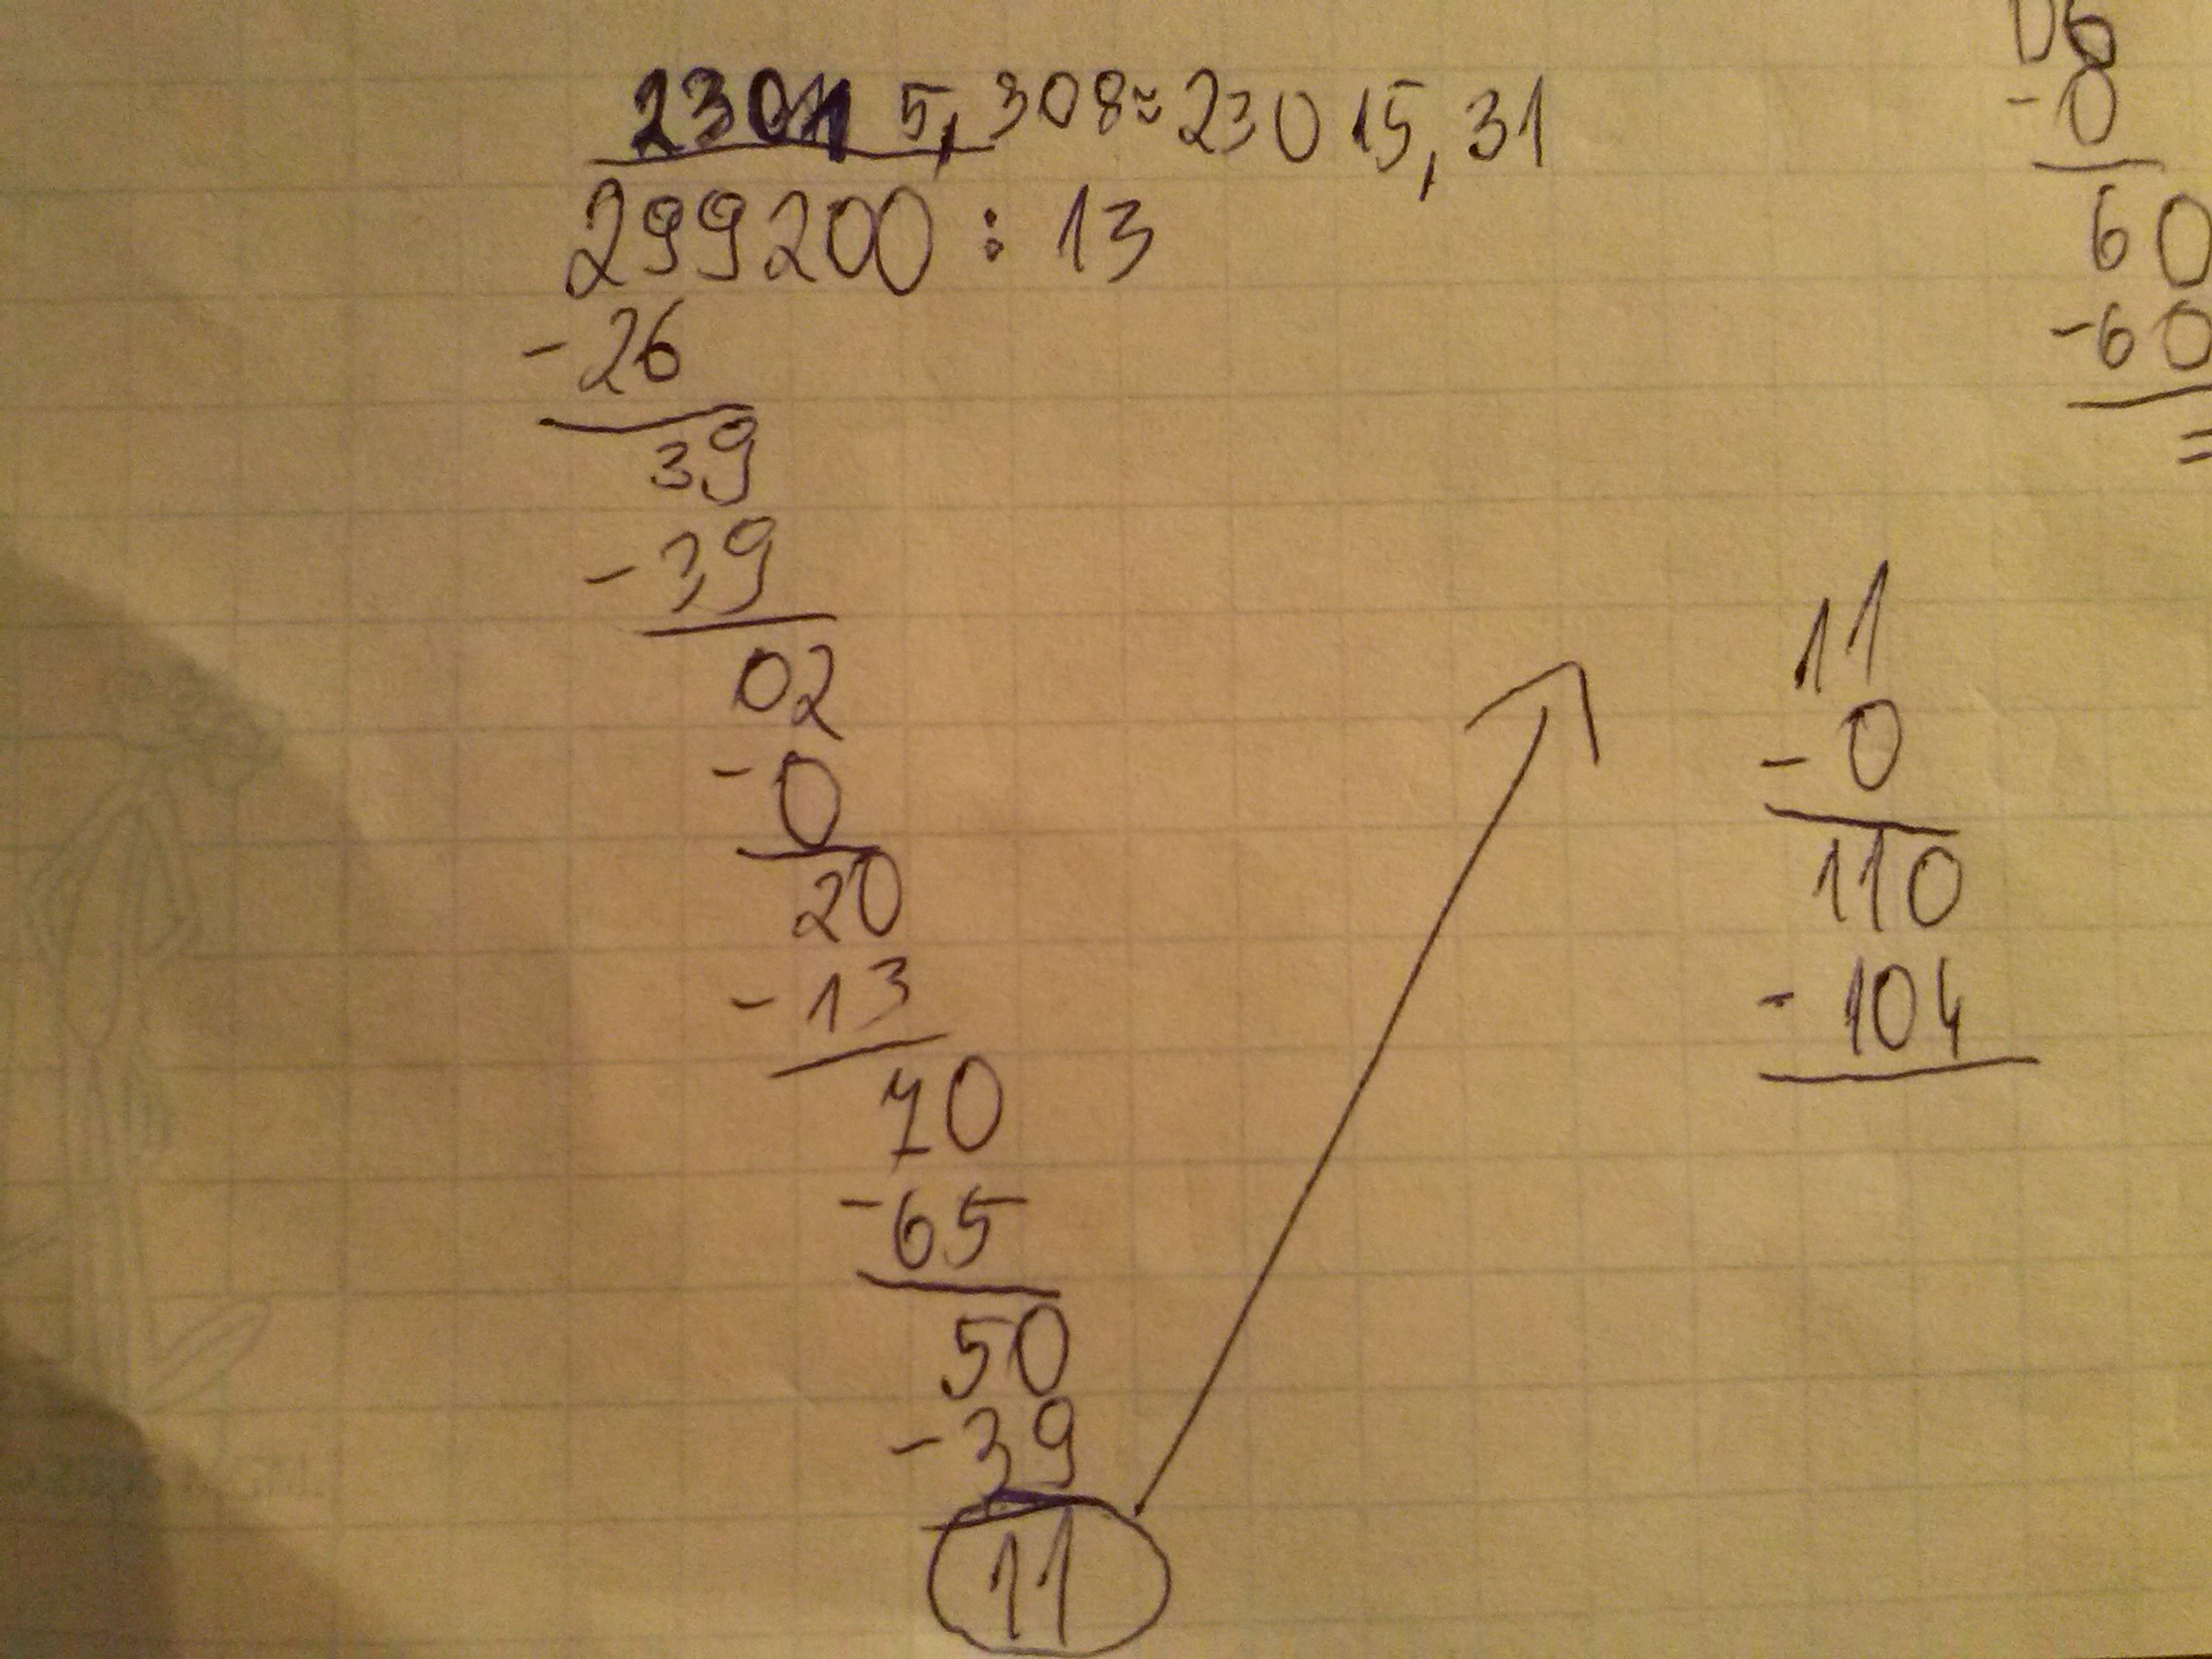 23015,308≈23015,31
299200 : 13
-26
39
-39
02
-0
20
-13
70
-65
50
-39
11
11
-0
110
-104
06
-0
60
-60
=